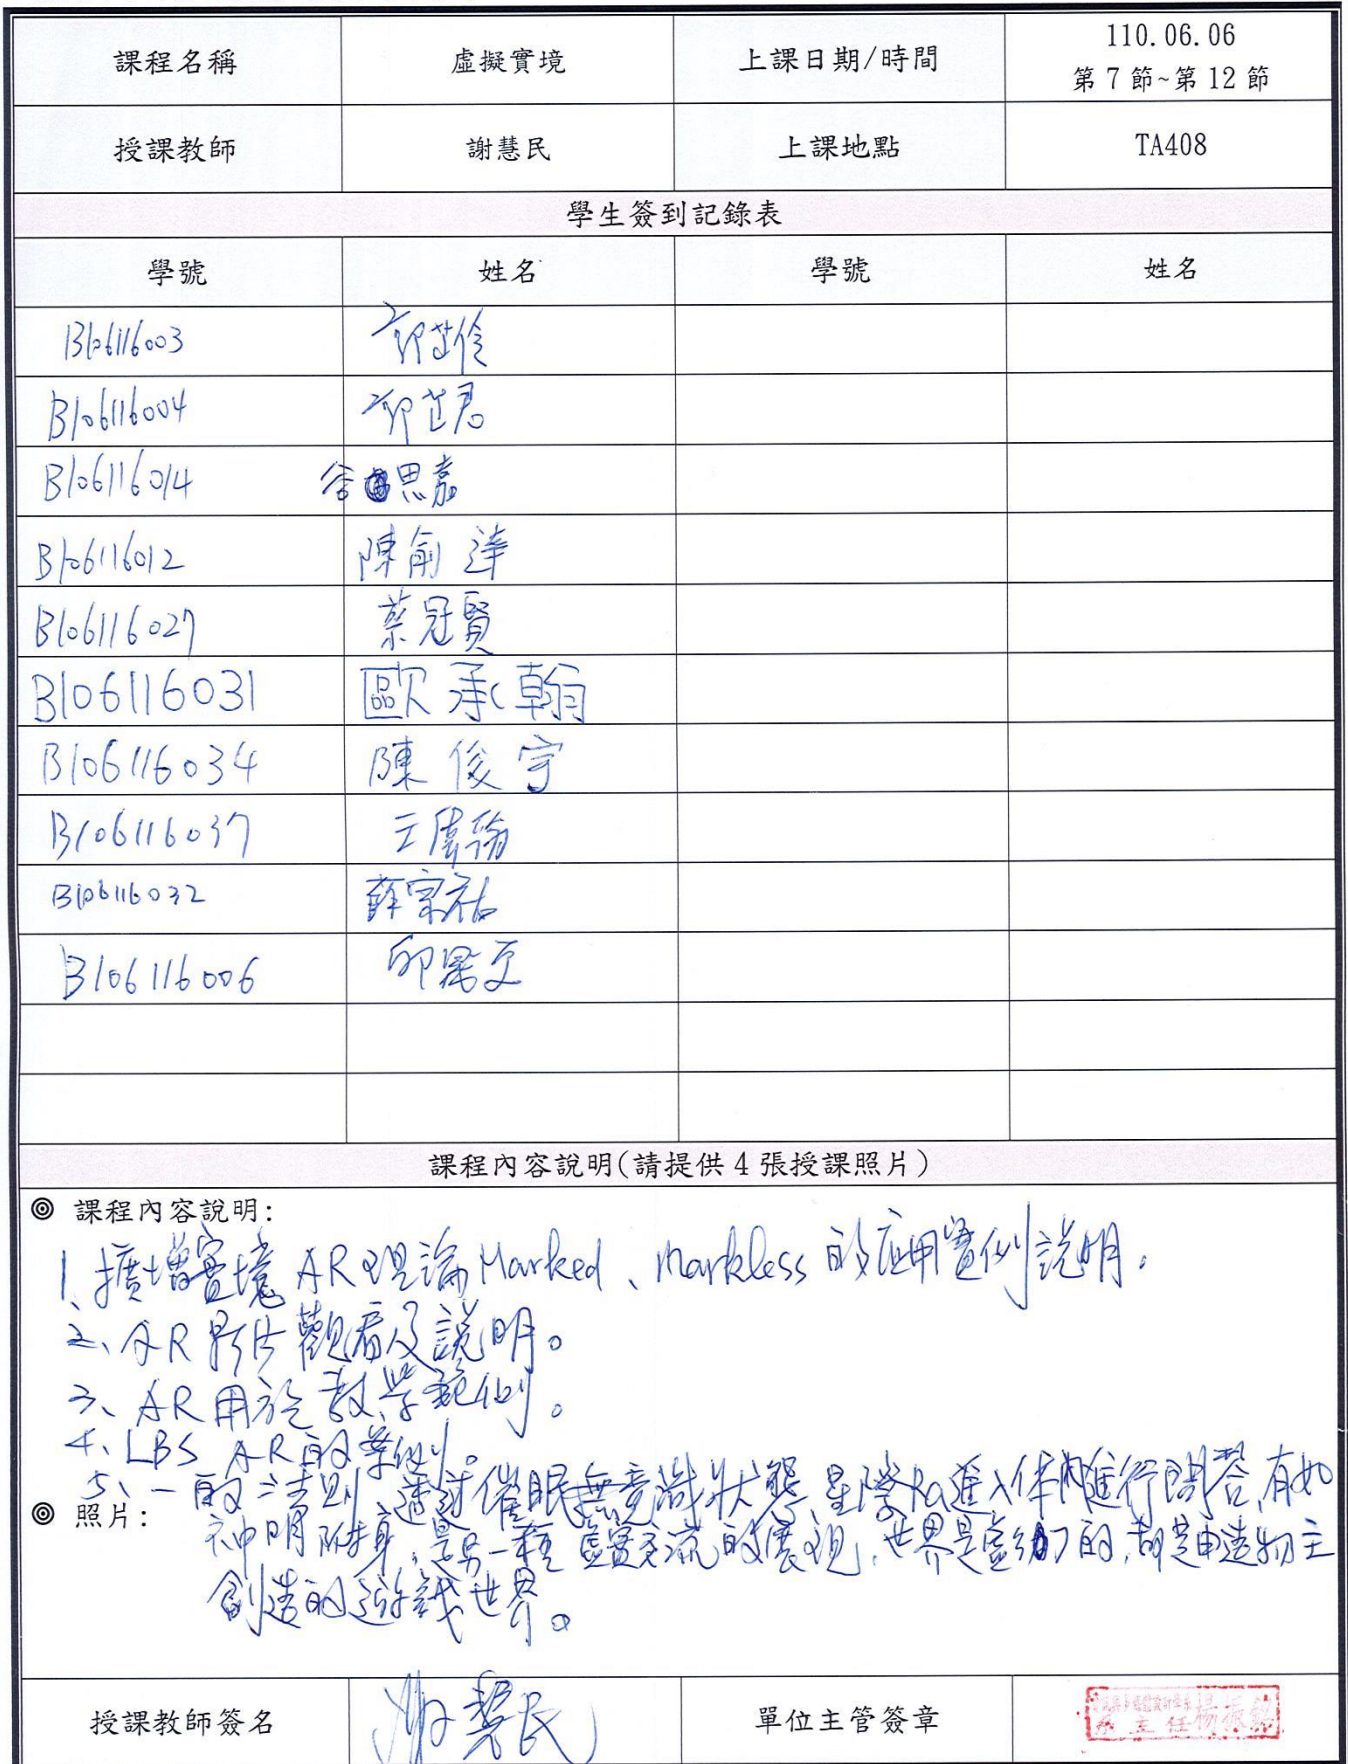 課程名稱 虛擬實境 上課日期/時間 110.06.06
第 7 節~第 12 節
授課教師 謝慧民 上課地點 TA408
學生簽到記錄表
學號 姓名 學號 姓名
B106116003
B106116004
B106116014 谷思嘉
B106116012 陳俞達
B106116027 蔡冠賢
B106116031 歐承翰
B106116034 陳俊宇
B106116037
B106116032 薛宗祐
B106116006
課程內容說明(請提供 4 張授課照片)
◎ 課程內容說明:
1、擴增實境 AR理論 Marked、Markless 的應用實例說明。
2、AR影片觀看及說明。
3、AR用於教學範例。
4、LBS AR的案例。
5、一的法則,透過催眠無意識狀態,星際Ra進入体內進行問答,有如
◎ 照片:
神明附身,是另一種虛實交流的展現,世界是虛幻的,都是由造物主
創造的遊戲世界。
授課教師簽名 謝慧民 單位主管簽章 系主任楊振銘